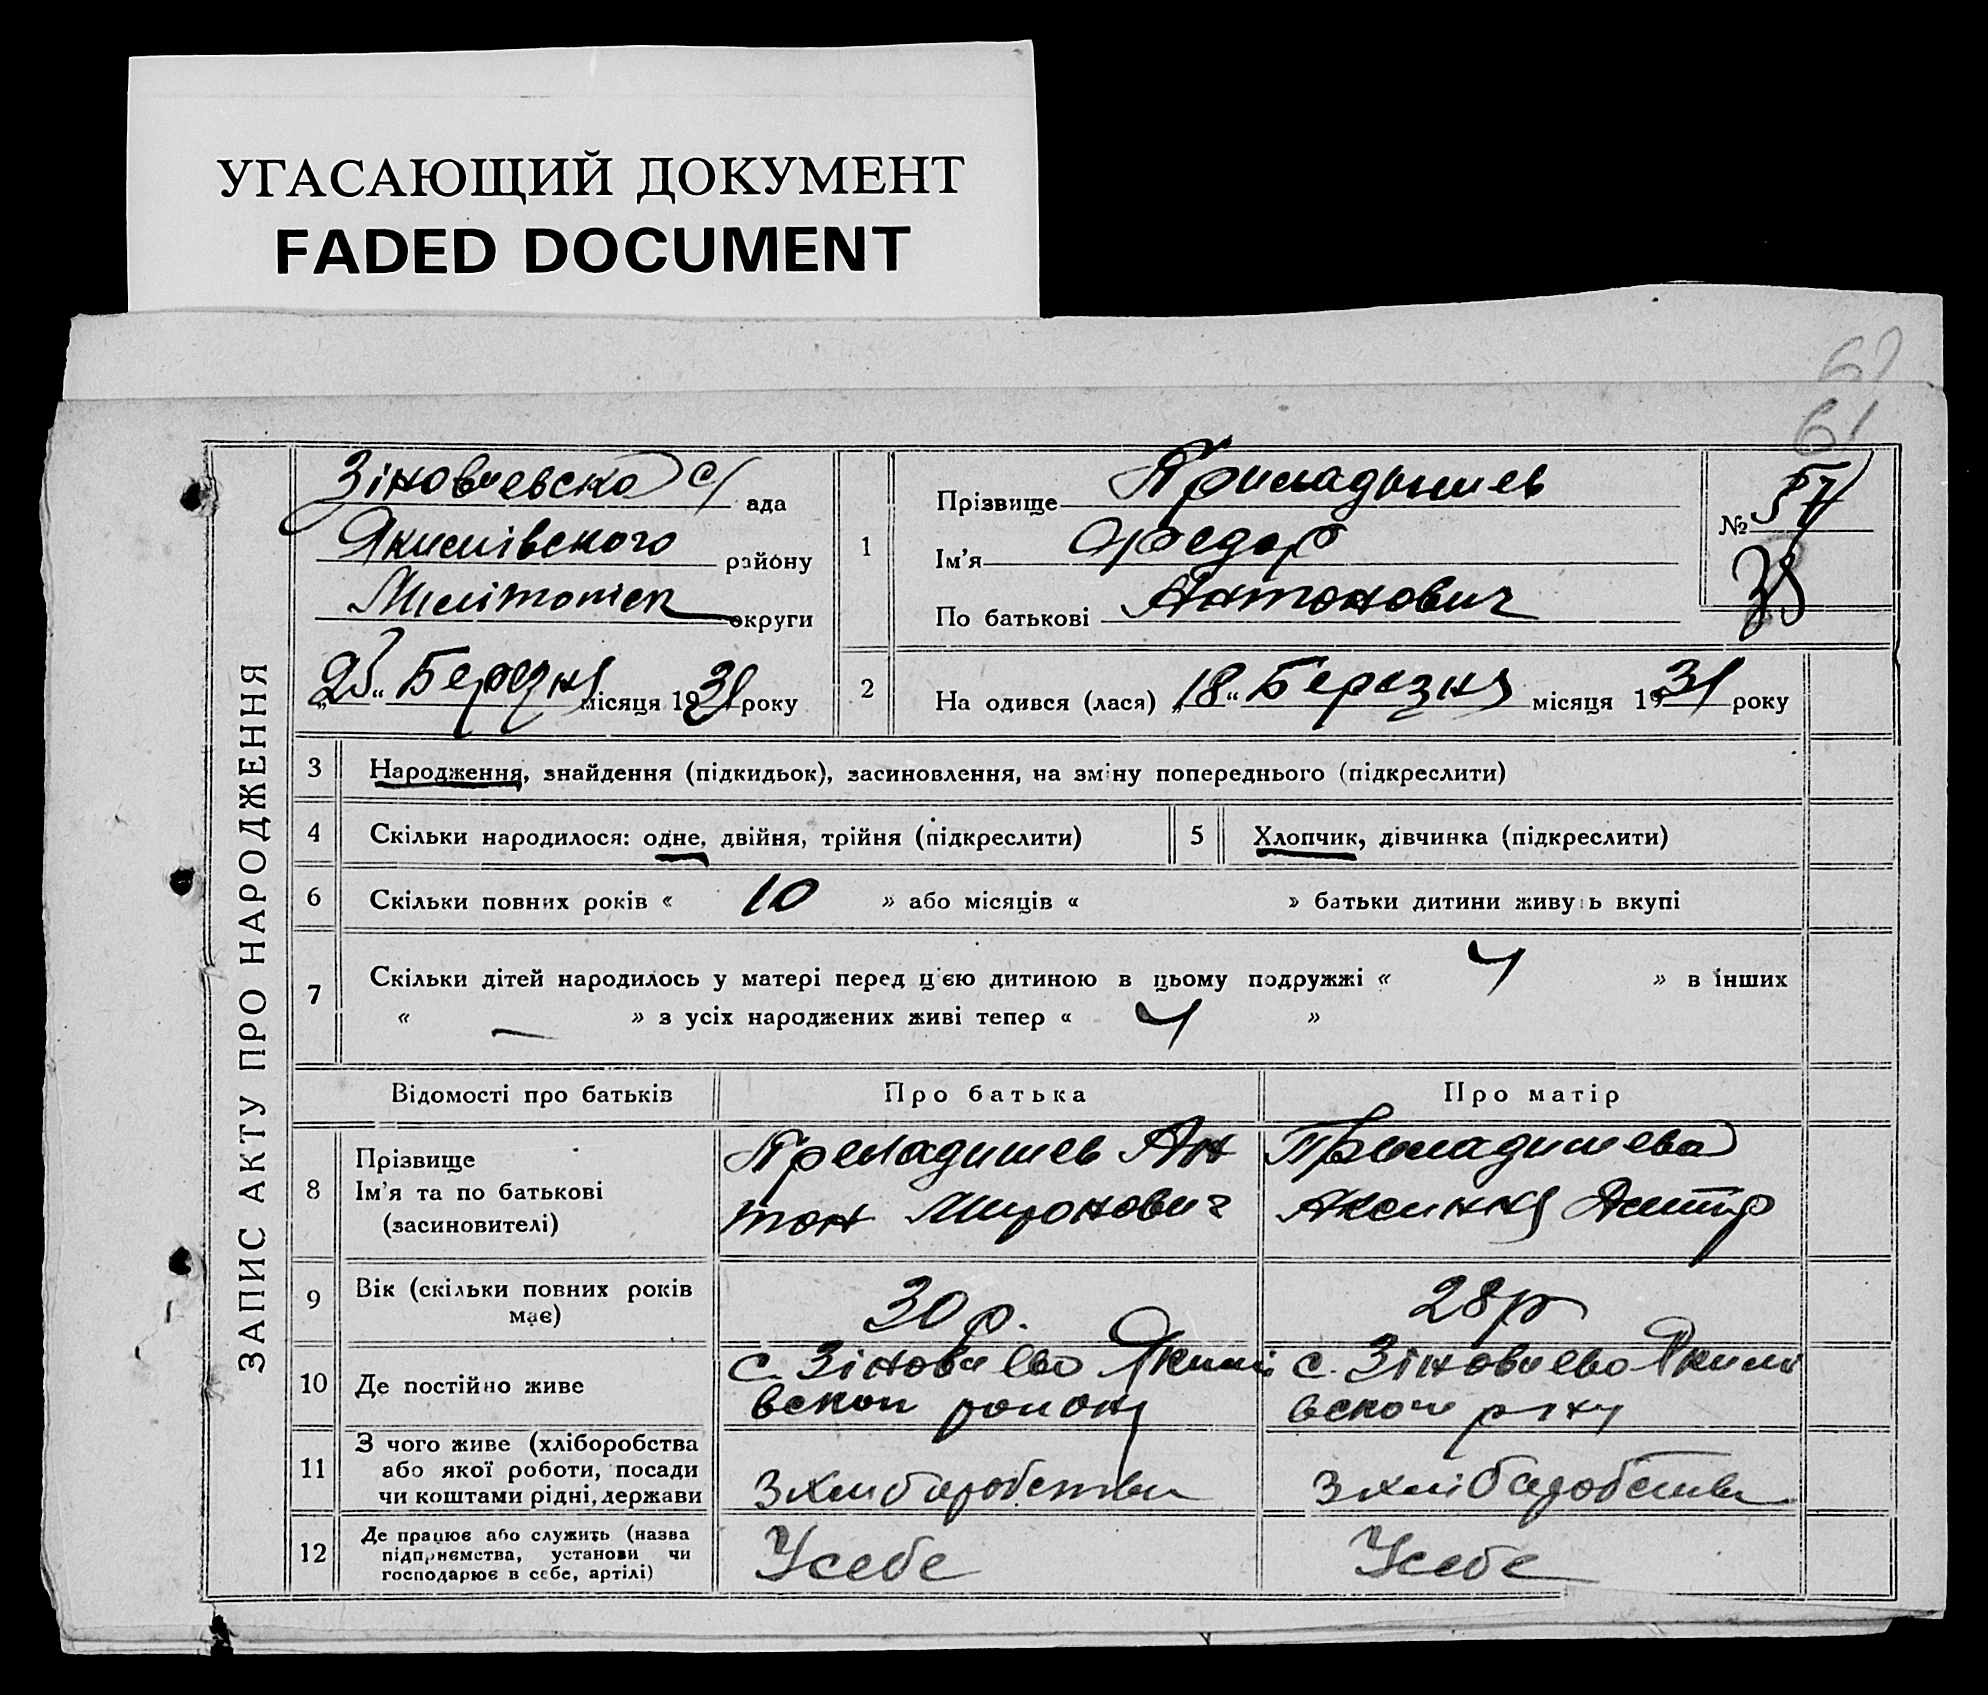 УГАСАЮЩИЙ ДОКУМЕНТ
FADED DOCUMENT
61
ЗАПИС АКТУ ПРО НАРОДЖЕННЯ
Зіновиевска с/ ада
Якимівского району
Мелітопіск округи
„25“ Березня місяця 1931 року
1
Прізвище Прикладышев
Ім'я Федор
По батькові Антонович
№
38
2 На одився (лася) „18“ Березня місяця 1931 року
3 Народження, знайдення (підкидьок), засиновлення, на зміну попереднього (підкреслити)
4 Скільки народилося: одне, двійня, трійня (підкреслити)
5 Хлопчик, дівчинка (підкреслити)
6 Скільки повних років « 10 » або місяців « » батьки дитини живуть вкупі
7 Скільки дітей народилось у матері перед цією дитиною в цьому подружжі « 4 » в інших
« — » з усіх народжених живі тепер « 4 »
Відомості про батьків Про батька Про матір
8 Прізвище
Ім'я та по батькові
(засиновителі)
Прекладишев Ан
тон Миронович
Прикладишева
Аксиння Дмитр
9 Вік (скільки повних років
має)
30 р.
28 р
10 Де постійно живе
с. Зіновиево Якимі
вского району
с. Зіновиево Якимі
вского р-ну
11 З чого живе (хліборобства
або якої роботи, посади
чи коштами рідні, держави
З хлиборобства
З хлиборобства
12 Де працює або служить (назва
підприємства, установи чи
господарює в себе, артілі)
Усебе
Усебе